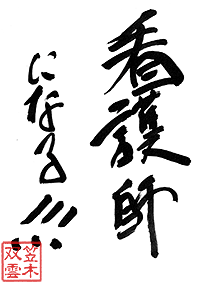 看護師
になる!!!
笠木
双雲